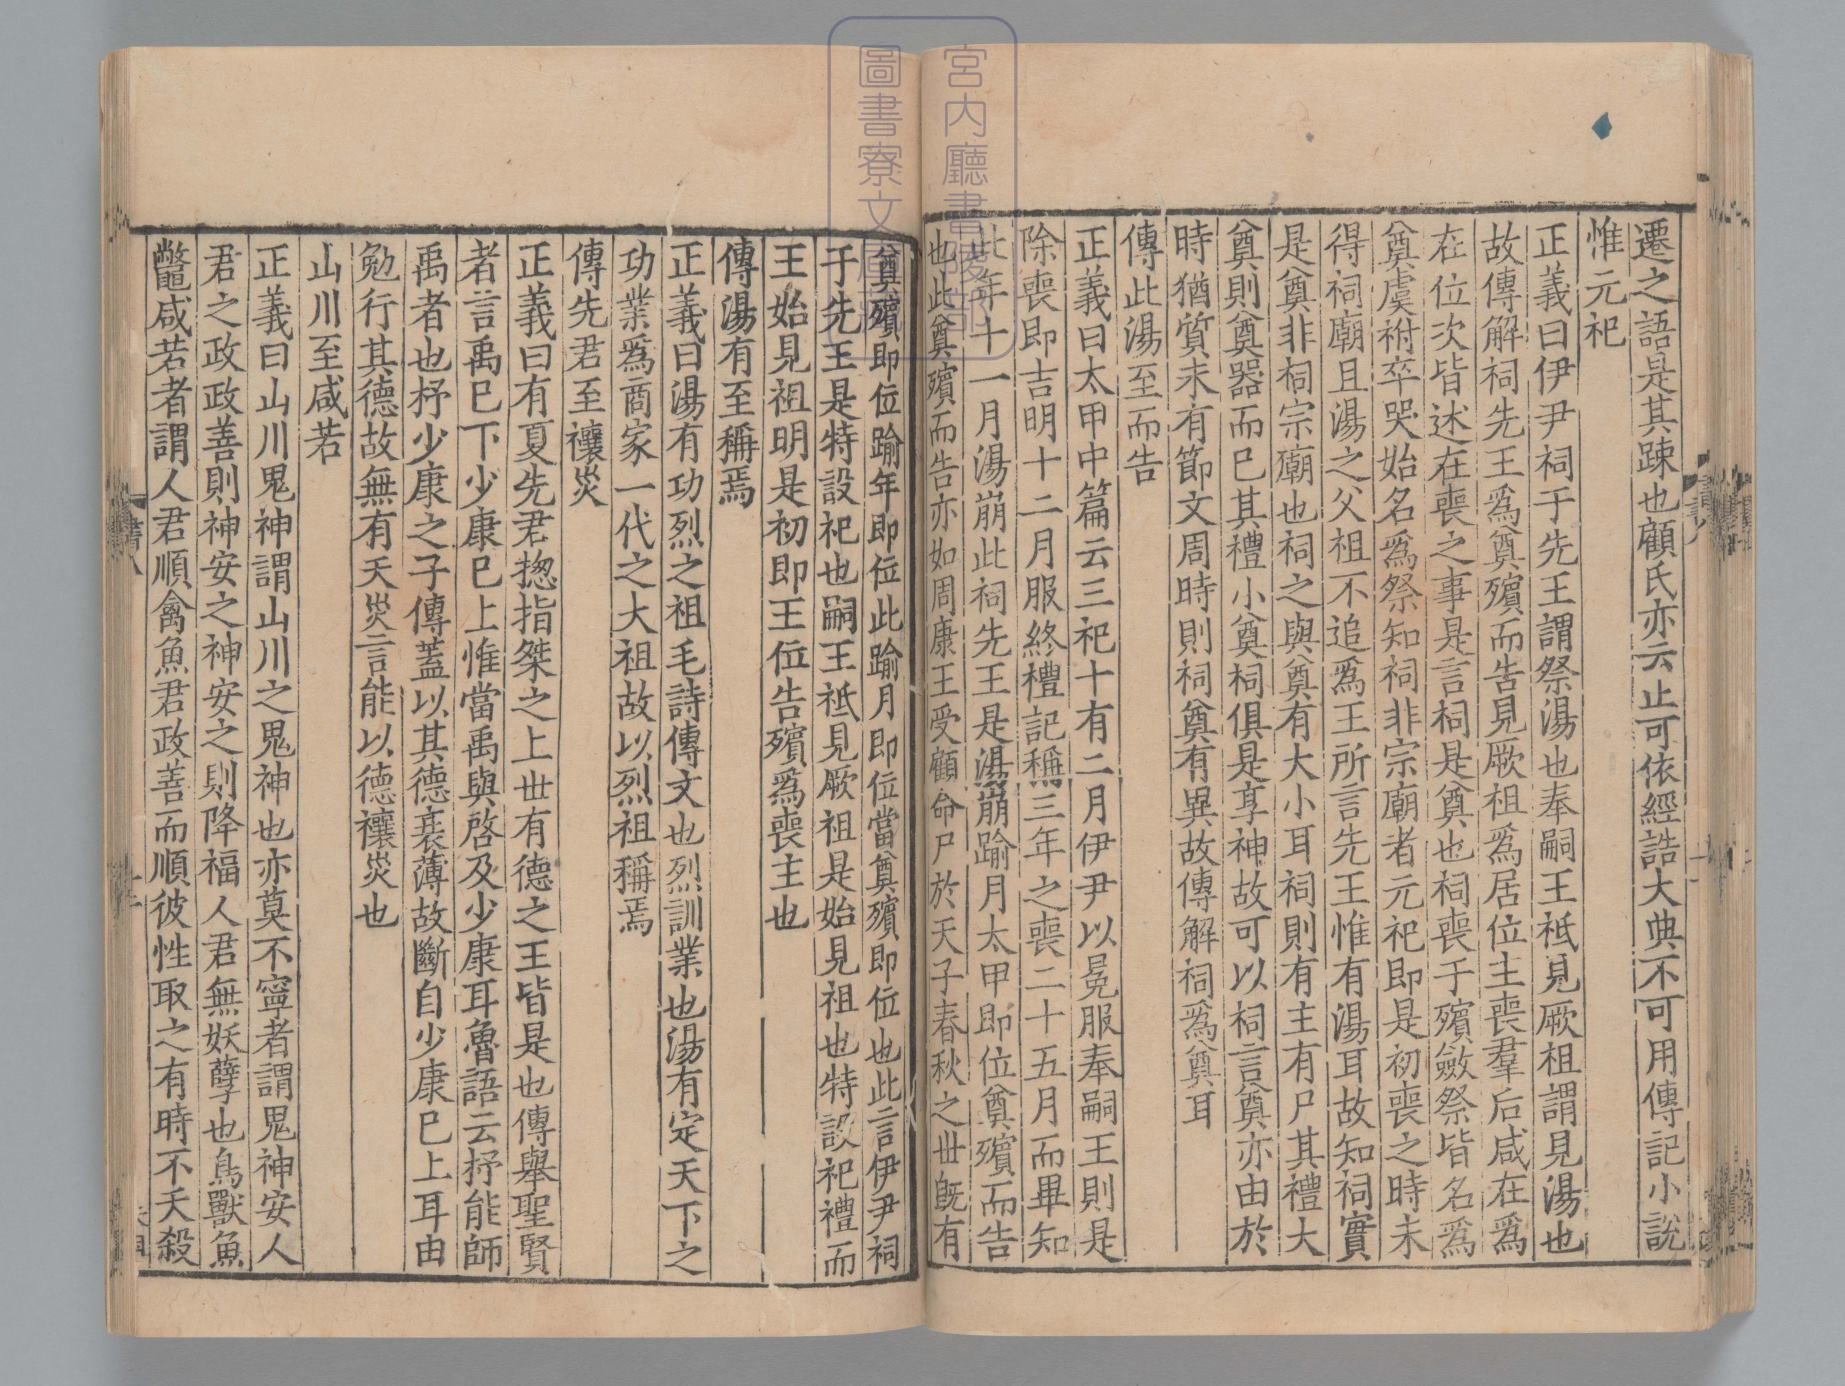 遷之語是其踈也顧氏亦云止可依經誥大典不可用傳記小説
惟元祀
正義曰伊尹祠于先王謂祭湯也奉嗣王祗見厥祖謂見湯也
故傳解祠先王爲奠殯而告見厥祖爲居位主喪羣后咸在爲
在位次皆述在喪之事是言祠是奠也祠喪于殯斂祭皆名爲
奠虞祔卒哭始名爲祭知祠非宗廟者元祀即是初喪之時未
得祠廟且湯之父祖不追爲王所言先王惟有湯耳故知祠實
是奠非祠宗廟也祠之與奠有大小耳祠則有主有尸其禮大
奠則奠器而已其禮小奠祠俱是享神故可以祠言奠亦由於
時猶質未有節文周時則祠奠有異故傳解祠爲奠耳
傳此湯至而告
正義曰太甲中篇云三祀十有二月伊尹以冕服奉嗣王則是
除喪即吉明十二月服終禮記稱三年之喪二十五月而畢知
此年十一月湯崩此祠先王是湯崩踰月太甲即位奠殯而告
也此奠殯而告亦如周康王受顧命尸於天子春秋之世旣有
奠殯即位踰年即位此踰月即位當奠殯即位也此言伊尹祠
于先王是特設祀也嗣王祗見厥祖是始見祖也特設祀禮而
王始見祖明是初即王位告殯爲喪主也
傳湯有至稱焉
正義曰湯有功烈之祖毛詩傳文也烈訓業也湯有定天下之
功業爲商家一代之大祖故以烈祖稱焉
傳先君至禳災
正義曰有夏先君揔指桀之上世有德之王皆是也傳舉聖賢
者言禹已下少康已上惟當禹與啓及少康耳魯語云抒能師
禹者也抒少康之子傳蓋以其德衰薄故斷自少康已上耳由
勉行其德故無有天災言能以德禳災也
山川至咸若
正義曰山川鬼神謂山川之鬼神也亦莫不寧者謂鬼神安人
君之政政善則神安之神安之則降福人君無妖孽也鳥獸魚
鼈咸若者謂人君順禽魚君政善而順彼性取之有時不夭殺
宮内廳書陵部
圖書寮文庫
書八